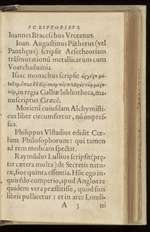 SCRIPTORIBVS.
Ioannes Braceschus Vrceanus.
Ioan. Augustinus Pātheus (vel
Pantheus) scripsit Artechneorium
trāsmutationū metallicarum cum
Voarchadumia.
Isac monachus scripsit
in regia Galliæ bibliotheca, ma-
nuscriptus Græcè.
Morieni cuiusdam Alchymisti-
cus liber circumfertur, nō impres-
sus.
Philippus Vlstadius edidit Cœ-
lum Philosophorum: qui tamen
ad rem medicam spectat.
Raymūdus Lullius scripsit (præ-
ter cætera multa) de Secretis natu-
ræ, siue quinta essentia. Hic ego in-
quirēdo comperio, apud Anglos ta-
quidem vera præstitisse, quod suis
libris pollicetur: et in arce Londi-
A 3